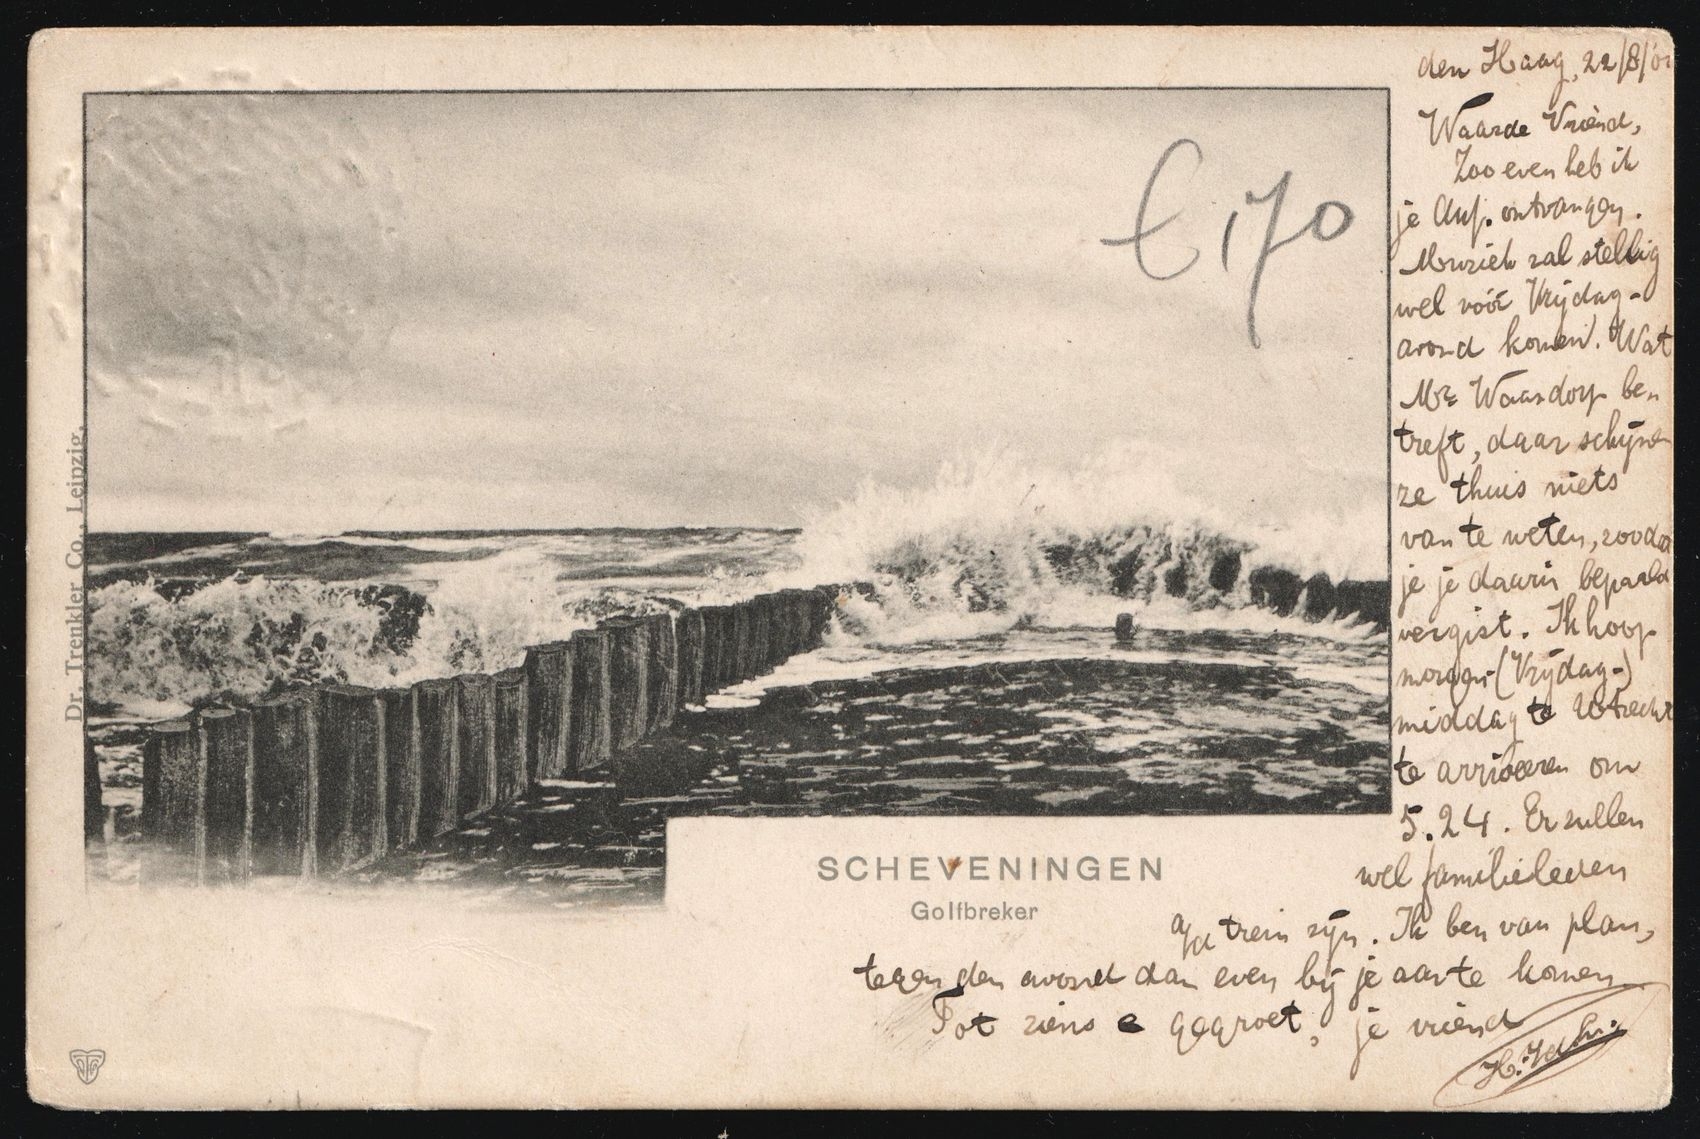 den Haag, 22/8/01
Waarde Vriend,
Zoo even heb ik
je Ansp. ontvangen.
Muziek zal stellig
wel vóór Vrijdag-
avond komen. Wat
Mr Waardorp be-
treft, daar schijnen
ze thuis niets
van te weten, zoodat
je je daarin bepaald
vergist. Ik hoop
morgen-(Vrijdag-)
middag te Utrecht
te arriveeren om
5.24. Er zullen
wel familieleden
a/d trein zijn. Ik ben van plan,
tegen den avond dan even bij je aan te komen
Tot ziens e gegroet, je vriend
H.
€ 1,70
Dr. Trenkler Co., Leipzig.
SCHEVENINGEN
Golfbreker